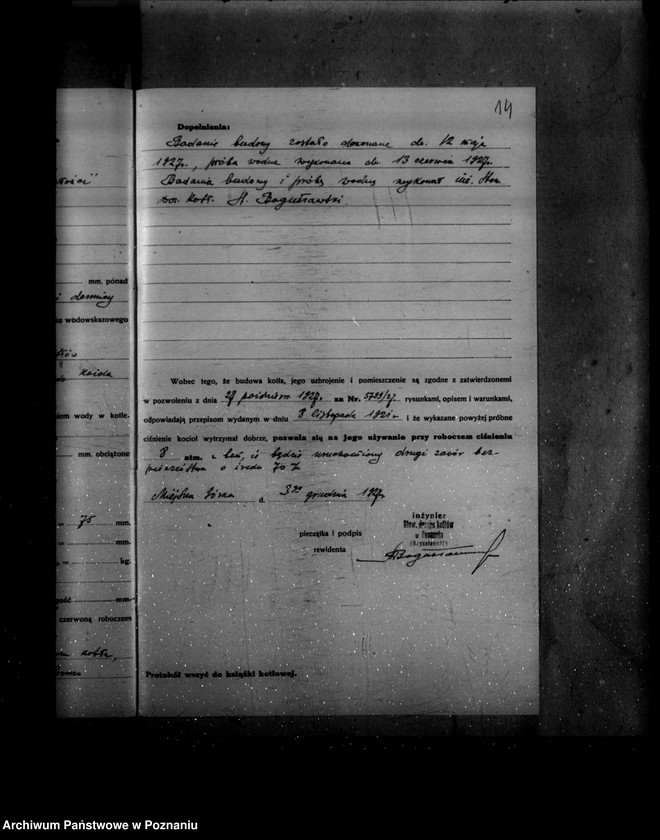 14
Dopełnienia:
Badanie budowy zostało dokonane dn. 12 maja
1927r., próba wodna wykonana dn. 13 czerwca 1927r.
Badania budowy i próby wodnej wykonał inż. Stow.
doz. kotł. A. Bogusławski.
mm. ponad
wodowskazowego
każda
iem wody w kotle.
mm. obciążone
= 75 mm.
= mm.
= kg.
mm.
czerwoną roboczem
kotła,
Wobec tego, że budowa kotła, jego uzbrojenie i pomieszczenie są zgodne z zatwierdzonemi
w pozwoleniu z dnia 27 października 1927r. za Nr. 5799/27. rysunkami, opisem i warunkami,
odpowiadają przepisom wydanym w dniu 8 listopada 1921 r. i że wykazane powyżej próbne
ciśnienie kocioł wytrzymał dobrze, pozwala się na jego używanie przy roboczem ciśnieniu
8 atm. z tem, iż będzie uruchomiony drugi zawór bez-
pieczeństwa
Miejska Górka d. 3go grudnia 1927r
pieczątka i podpis
rewidenta
inżynier
Stow. dozoru kotłów
w Poznaniu
(Bogusławski)
ABogusławski
Protokół wszyć do książki kotłowej.
Archiwum Państwowe w Poznaniu